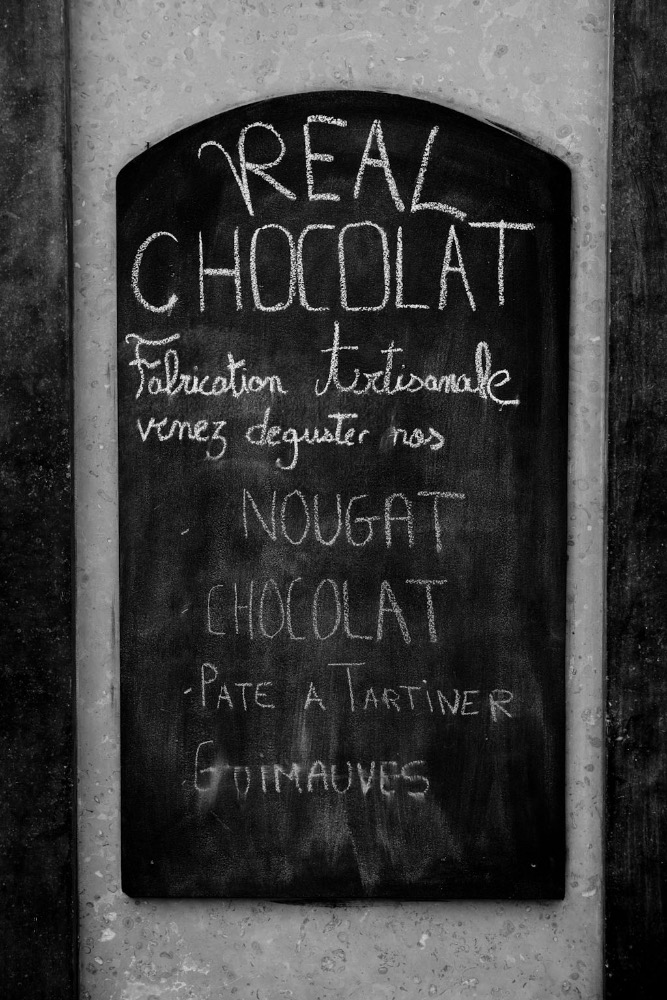 REAL
CHOCOLAT
Fabrication Artisanale
venez deguster nos
NOUGAT
CHOCOLAT
- PATE A TARTINER
GUIMAUVES